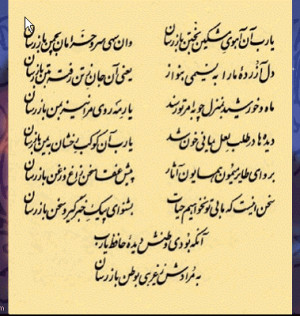 یارب آن آهوی مشکین به ختن بازرسان وان سهی سرو خرامان به چمن بازرسان
دل آزرده ما را به نسیمی بنواز یعنی آن جان ز تن رفته به تن بازرسان
ماه و خورشید به منزل چو به امر تو رسند یار مه روی مرا نیز به من بازرسان
دیده‌ها در طلب لعل یمانی خون شد یارب آن کوکب رخشان به یمن بازرسان
برو ای طایر میمون همایون آثار پیش عنقا سخن زاغ و زغن بازرسان
سخن اینست که ما بی تو نخواهیم حیات بشنو ای پیک خبرگیر و سخن بازرسان
آنکه بودی وطنش دیده حافظ یارب
به مرادش ز غریبی به وطن بازرسان